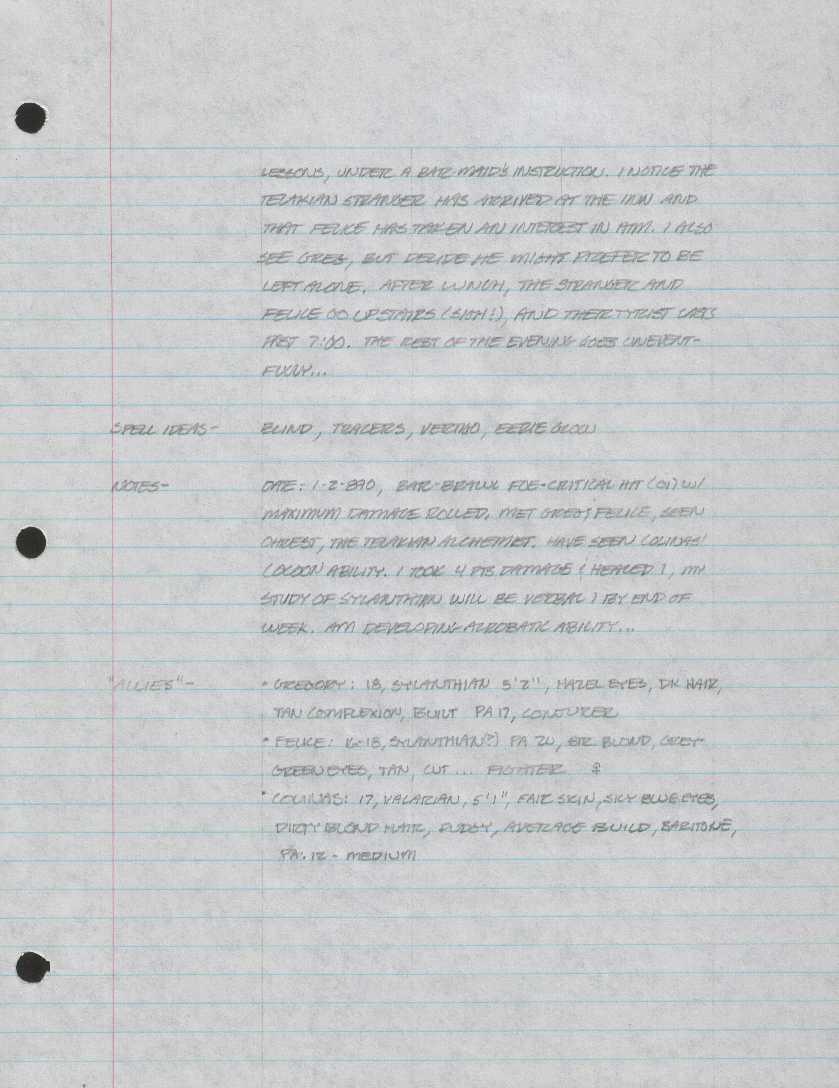 LESSONS, UNDER A BAR-MAID'S INSTRUCTION. I NOTICE THE
TELAKIAN STRANGER HAS ARRIVED AT THE INN AND
THAT FELICE HAS TAKEN AN INTEREST IN HIM. I ALSO
SEE GREG, BUT DECIDE HE MIGHT PREFER TO BE
LEFT ALONE. AFTER LUNCH, THE STRANGER AND
FELICE GO UPSTAIRS (SIGH!), AND THEIR TYRIST LASTS
PAST 7:00. THE REST OF THE EVENING GOES UNEVENT-
FULLY...
SPELL IDEAS- BLIND, TRACERS, VERTIGO, EERIE GLOW
NOTES- DATE: 1-2-890, BAR-BRAWL FOE-CRITICAL HIT (01) W/
MAXIMUM DAMAGE ROLLED. MET GREG, FELICE, SEEN
CHREST, THE TELAKIAN ALCHEMIST. HAVE SEEN COLINAS'
COCOON ABILITY. I TOOK 4 PTS DAMAGE (HEALED), MY
STUDY OF SYLANTHIAN WILL BE VERBAL 1 BY END OF
WEEK. AM DEVELOPING ACROBATIC ABILITY...
"ALLIES"- • GREGORY: 18, SYLANTHIAN 5'2", HAZEL EYES, DK HAIR,
TAN COMPLEXION, BUILT PA 17, CONJURER
• FELICE: 16-18, SYLANTHIAN(?) PA 20, STR. BLOND, GREY-
GREEN EYES, TAN, CUT... FIGHTER ♀
• COLINAS: 17, VALARIAN, 5'1", FAIR SKIN, SKY BLUE EYES,
DIRTY BLOND HAIR, PUDGY, AVERAGE BUILD, BARITONE,
PA: 12 - MEDIUM